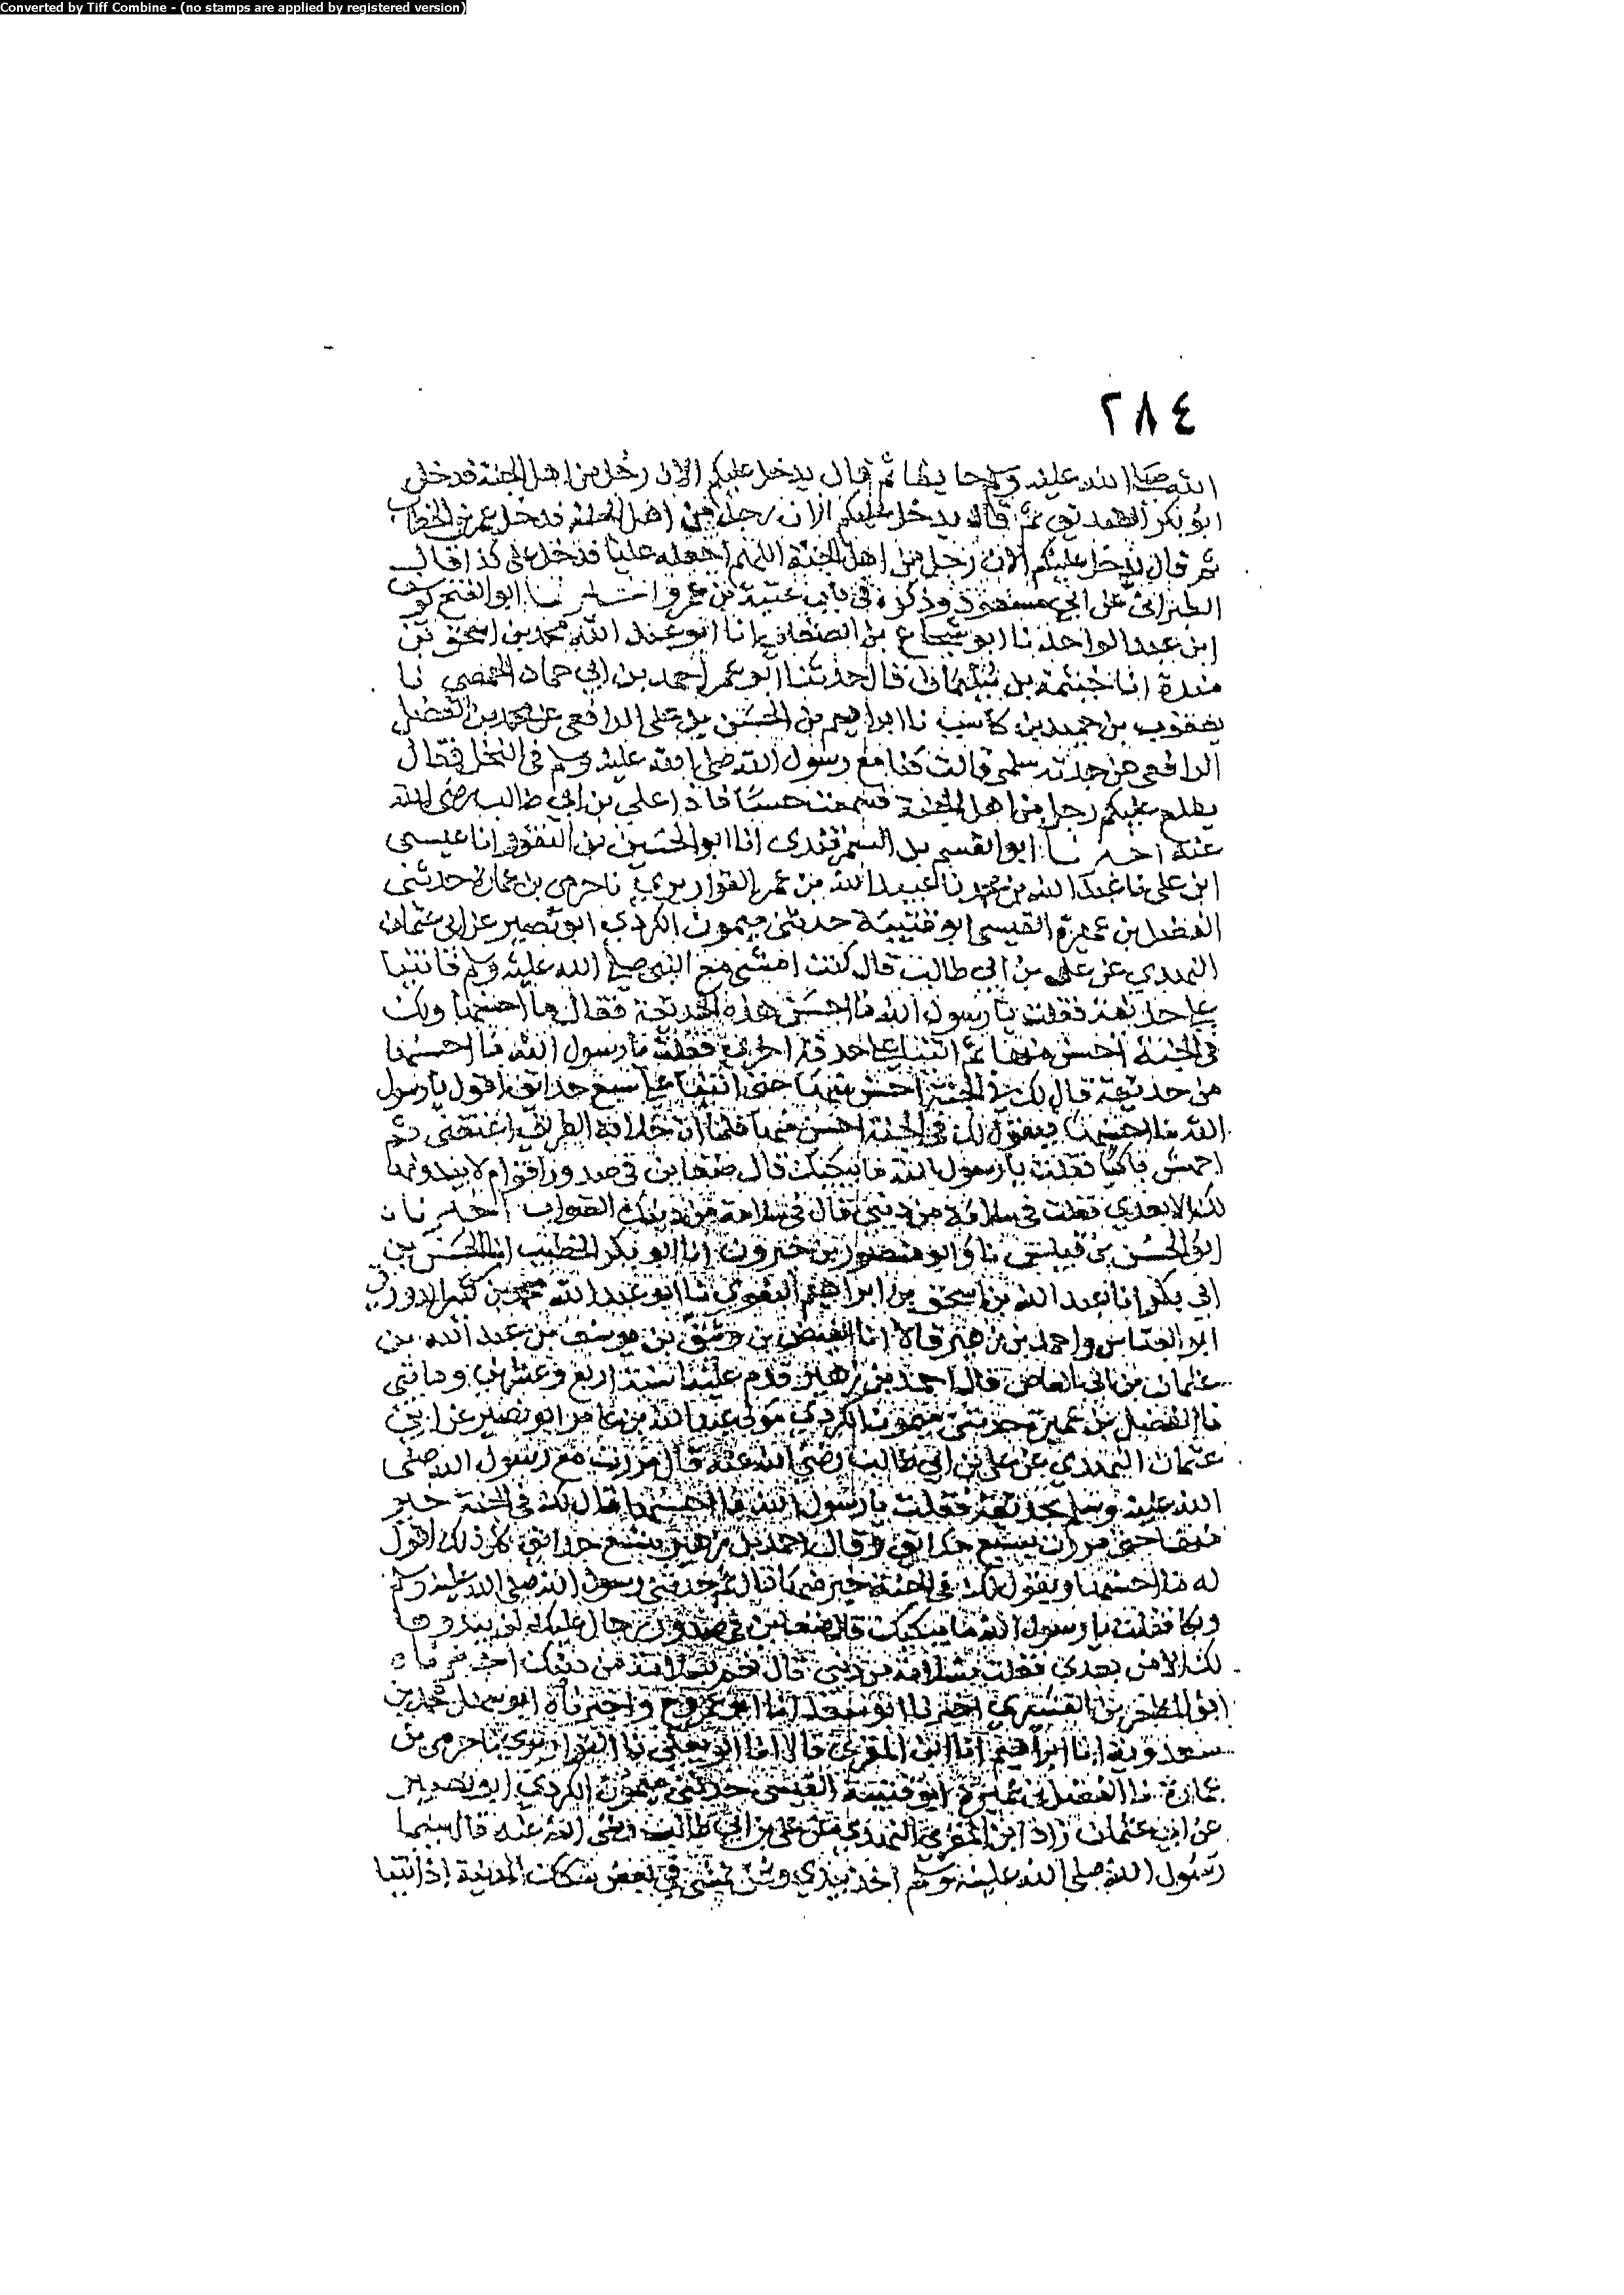 Converted by Tiff Combine - (no stamps are applied by registered version)
٢٨٤
الله صلى الله عليه وسلم حايطا ثم قال يدخل عليكم الان رجل من اهل الجنة فدخل
ابو بكر الصديق ثم قال يدخل عليكم الان رجل من اهل الجنة فدخل عمر بن الخطاب
ثم قال يدخل عليكم الان رجل من اهل الجنة اللهم اجعله عليا فدخل علي كذا قال
الطبراني عن ابي مسعود وذكره في باب عتبة بن عمرو اخبرنا ابو الفتح يوسف
ابن عبد الواحد نا ابو شجاع بن الصنعاني انا ابو عبد الله محمد بن اسحق بن
مندة انا خيثمة بن سليمان قال حدثنا ابو عمر احمد بن ابي حماد الحمصي نا
يعقوب بن حميد بن كاسب نا ابراهيم بن الحسن بن علي الرافعي عن محمد بن الفضل
الرافعي عن جدته سلمى قالت كنا مع رسول الله صلى الله عليه وسلم في النخل فقال
يطلع عليكم رجل من اهل الجنة فسمعت حسا فاذا علي بن ابي طالب رضي الله
عنه اخبرنا ابو القسم بن السمرقندي انا ابو الحسين بن النقور انا عيسى
ابن علي نا عبد الله بن محمد نا عبيد الله بن عمر القواريري نا حرمي بن عمارة حدثني
الفضل بن عميرة القيسي ابو قتيبة حدثني ميمون الكردي ابو نصير عن ابي عثمان
النهدي عن علي بن ابي طالب قال كنت امشي مع النبي صلى الله عليه وسلم فاتينا
على حديقة فقلت يا رسول الله ما احسن هذه الحديقة فقال ما احسنها ولك
في الجنة احسن منها ثم اتينا على حديقة اخرى فقلت يا رسول الله ما احسنها
من حديقة قال لك في الجنة احسن منها حتى اتينا على سبع حدائق اقول يا رسول
الله ما احسنها ويقول لك في الجنة احسن منها فلما ان خلا له الطريق اعتنقني ثم
اجهش باكيا فقلت يا رسول الله ما يبكيك قال ضغاين في صدور اقوام لا يبدونها
لك الا بعدي فقلت في سلامة من ديني قال في سلامة من دينك الصواب اخبرنا
ابو الحسن بن قبيس نا وابو منصور بن خيرون انا ابو بكر الخطيب انا الحسن بن
ابي بكر انا عبد الله بن اسحق بن ابراهيم البغوي نا ابو عبد الله محمد بن الدورقي
ابو العباس واحمد بن زهير قالا انا الفيض بن وثيق بن يوسف بن عبد الله بن
عثمان بن ابي العاص قال احمد بن زهير قدم علينا سنة اربع وعشرين ومائتي
نا الفضل بن عميرة حدثني ميمون الكردي مولى عبد الله بن عامر ابو نصير عن ابي
عثمان النهدي عن علي بن ابي طالب رضي الله عنه قال مررت مع رسول الله صلى
الله عليه وسلم بحديقة فقلت يا رسول الله ما احسنها قال لك في الجنة خير
منها حتى مررت بسبع حدائق وقال احمد بن زهير بسبع حدائق كل ذلك اقول
له ما احسنها ويقول لك في الجنة خير منها قال ثم جذبني رسول الله صلى الله عليه وسلم
وبكا فقلت يا رسول الله ما يبكيك قال ضغاين في صدور رجال عليك لن يبدوها
لك الا من بعدي فقلت بسلامة من ديني قال نعم بسلامة من دينك اخبرناه
ابو المظفر بن القشيري اخبرنا ابو سعد انا ابو عمرو ح واخبرناه ابو سهل محمد بن
سعدوية انا ابراهيم انا ابن المقرئ قالا انا ابو يعلى نا القواريري نا حرمي بن
عمارة نا الفضل بن عميرة ابو قتيبة القيسي حدثني ميمون الكردي ابو نصير
عن ابي عثمان زاد ابن المقرئ النهدي عن علي بن ابي طالب رضي الله عنه قال بينما
رسول الله صلى الله عليه وسلم اخذ بيدي ونحن نمشي في بعض سكك المدينة اذ اتينا